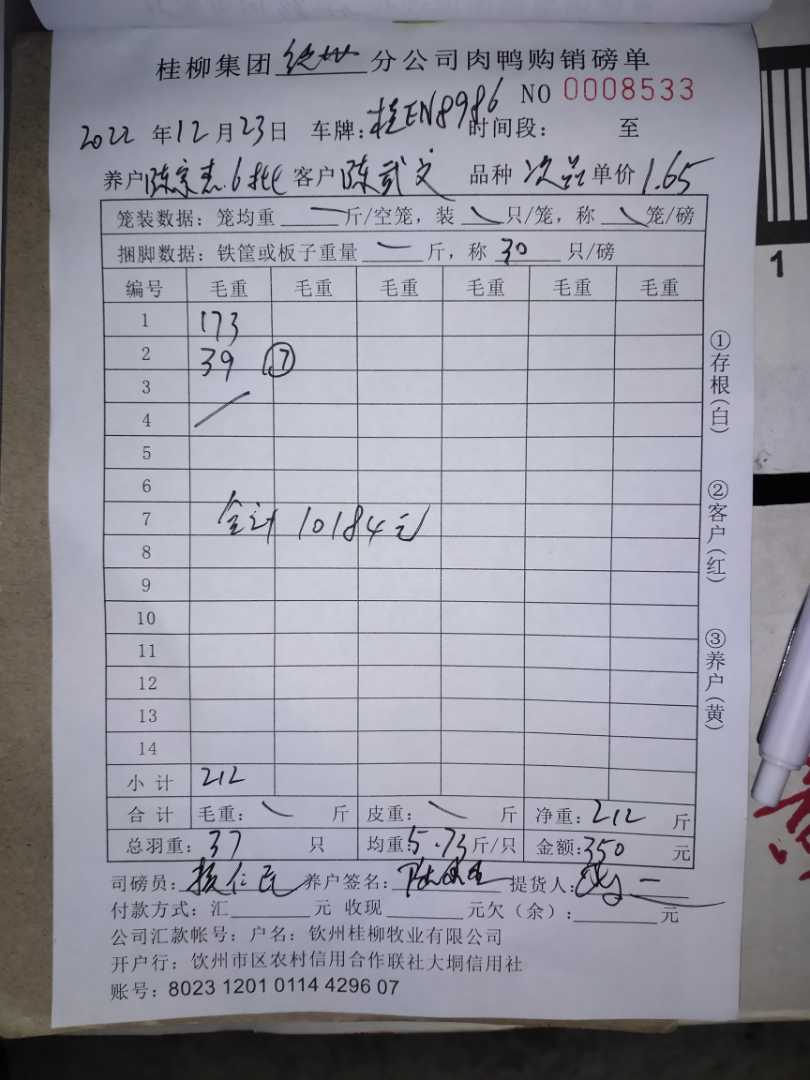 桂柳集团 钦州 分公司肉鸭购销磅单
NO 0008533
2022 年 12 月 23 日 车牌: 桂EN8986 时间段: 至
养户 陈宗志6批 客户 陈武文 品种 次品 单价 1.65
笼装数据: 笼均重 斤/空笼, 装 只/笼, 称 笼/磅
捆脚数据: 铁筐或板子重量 斤, 称 30 只/磅
编号 毛重 毛重 毛重 毛重 毛重 毛重
1 173
2 39 ⑦
3
4
5
6
7 合计 10184元
8
9
10
11
12
13
14
小 计 212
合 计 毛重: 斤 皮重: 斤 净重: 212 斤
总羽重: 37 只 均重: 5.73 斤/只 金额: 350 元
司磅员: 养户签名: 提货人:
付款方式: 汇 元 收现 元欠 (余): 元
公司汇款帐号: 户名: 钦州桂柳牧业有限公司
开户行: 钦州市区农村信用合作联社大垌信用社
账号: 8023 1201 0114 4296 07
①存根(白)
②客户(红)
③养户(黄)
1